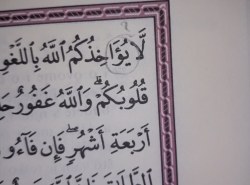 لَّا يُؤَاخِذُكُمُ اللَّهُ بِاللَّغْوِ
قُلُوبُكُمْ ۗ وَاللَّهُ غَفُورٌ
أَرْبَعَةِ أَشْهُرٍ ۖ فَإِن فَاءُو